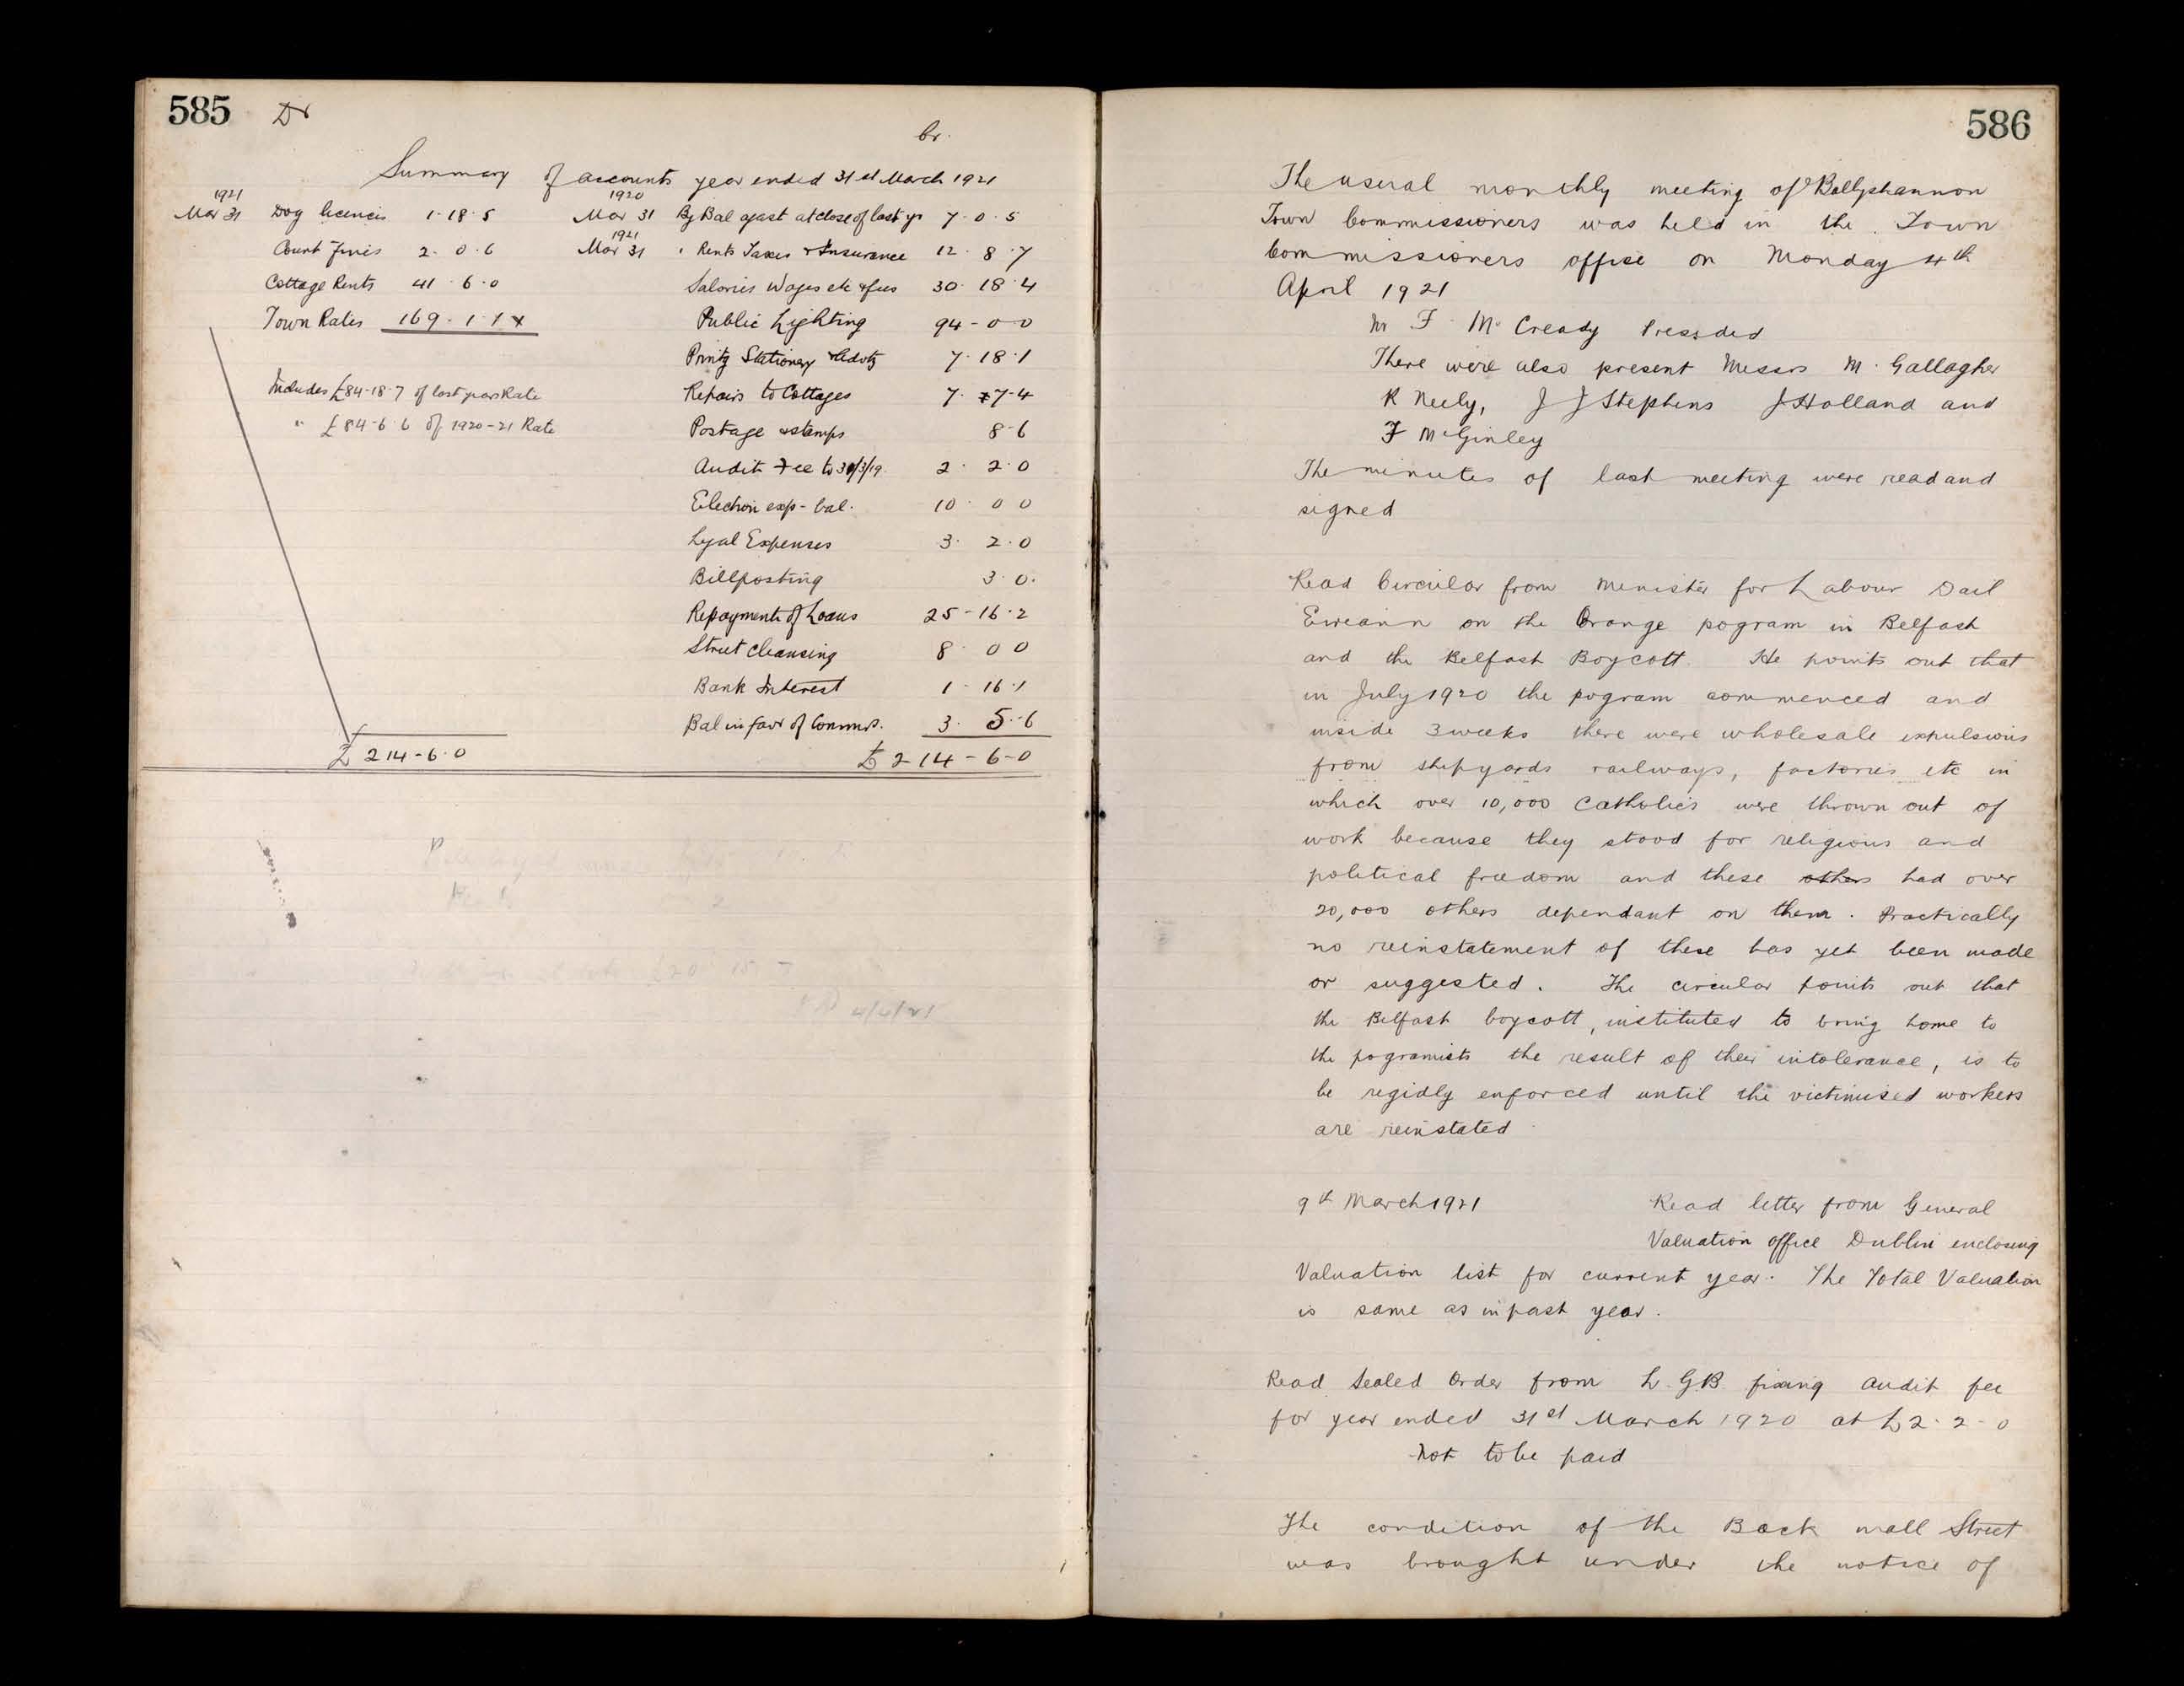 585 Dr
Cr.
Summary of accounts year ended 31st March 1921
1921 1920
Mar 31 Dog licences 1.18.5 Mar 31 By Bal agast at close of last yr 7.0.5
1921
Court fines 2.0.6 Mar 31 " Rents Taxes & Insurance 12.8.7
Cottage Rents 41.6.0 Salaries Wages etc & fees 30.18.4
Town Rates 169.1.1 x Public Lighting 94-0 0
Printg Stationery & Advtg 7.18.1
Includes £84-18-7 of last years Rate Repairs to Cottages 7. 7-4
" £84-6-6 of 1920-21 Rate Postage & stamps 8-6
Audit Fee to 31/3/19 2.2.0
Election exp- bal. 10.0 0
Legal Expenses 3.2.0
Billposting 3.0.
Repayments of Loans 25-16.2
Street cleansing 8.0 0
Bank Interest 1-16.1
Bal in favr of Commrs. 3.5.6
£214-6.0 £214-6-0
£20 15 7
4/4/21
586
The usual monthly meeting of Ballyshannon
Town Commissioners was held in the Town
Commissioners office on Monday 4th
April 1921
Mr F Mc Cready Presided
There were also present Messrs M. Gallagher
R Neely, J J Stephens J Holland and
F McGinley
The minutes of last meeting were read and
signed
Read Circular from Minister for Labour Dail
Eireann on the Orange pogram in Belfast
and the Belfast Boycott. He points out that
in July 1920 the pogram commenced and
inside 3 weeks there were wholesale expulsions
from shipyards railways, factories etc in
which over 10,000 Catholics were thrown out of
work because they stood for religious and
political freedom and these others had over
20,000 others dependant on them. Practically
no reinstatement of these has yet been made
or suggested. The circular points out that
the Belfast boycott, instituted to bring home to
the pogramists the result of their intolerance, is to
be regidly enforced until the victimised workers
are reinstated
9th March 1921 Read letter from General
Valuation office Dublin enclosing
Valuation list for current year. The Total Valuation
is same as in past year.
Read Sealed Order from L.G.B fixing Audit fee
for year ended 31st March 1920 at £2.2-0
Not to be paid
The condition of the Back Mall Street
was brought under the notice of